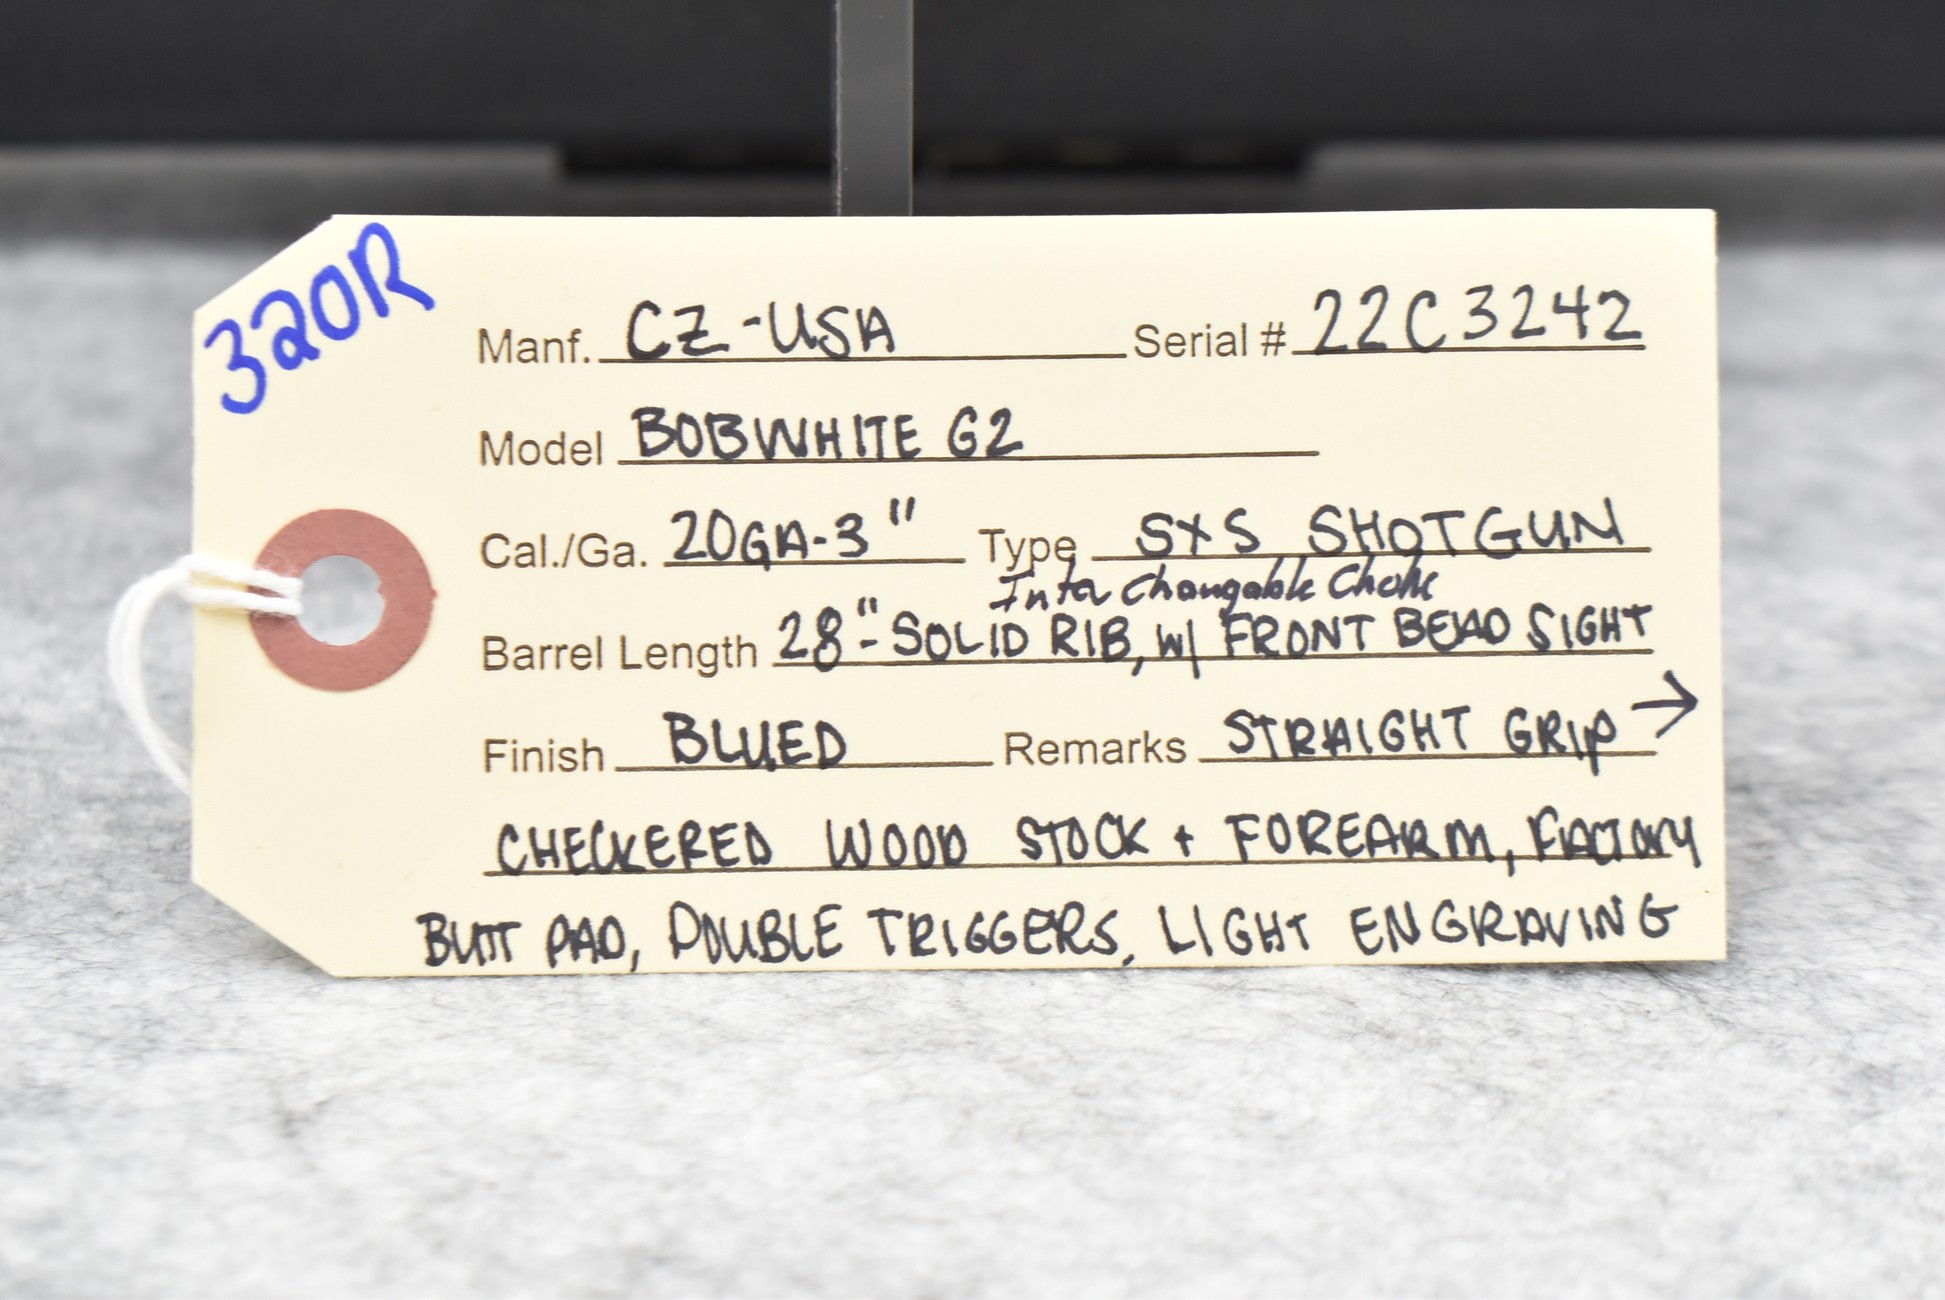 320R
Manf. CZ-USA Serial # 22C3242
Model BOBWHITE G2
Cal./Ga. 20GA-3" Type SXS SHOTGUN
Inter Changable Choke
Barrel Length 28"- SOLID RIB, W/ FRONT BEAD SIGHT
Finish BLUED Remarks STRAIGHT GRIP →
CHECKERED WOOD STOCK + FOREARM, FACTORY
BUTT PAD, DOUBLE TRIGGERS, LIGHT ENGRAVING